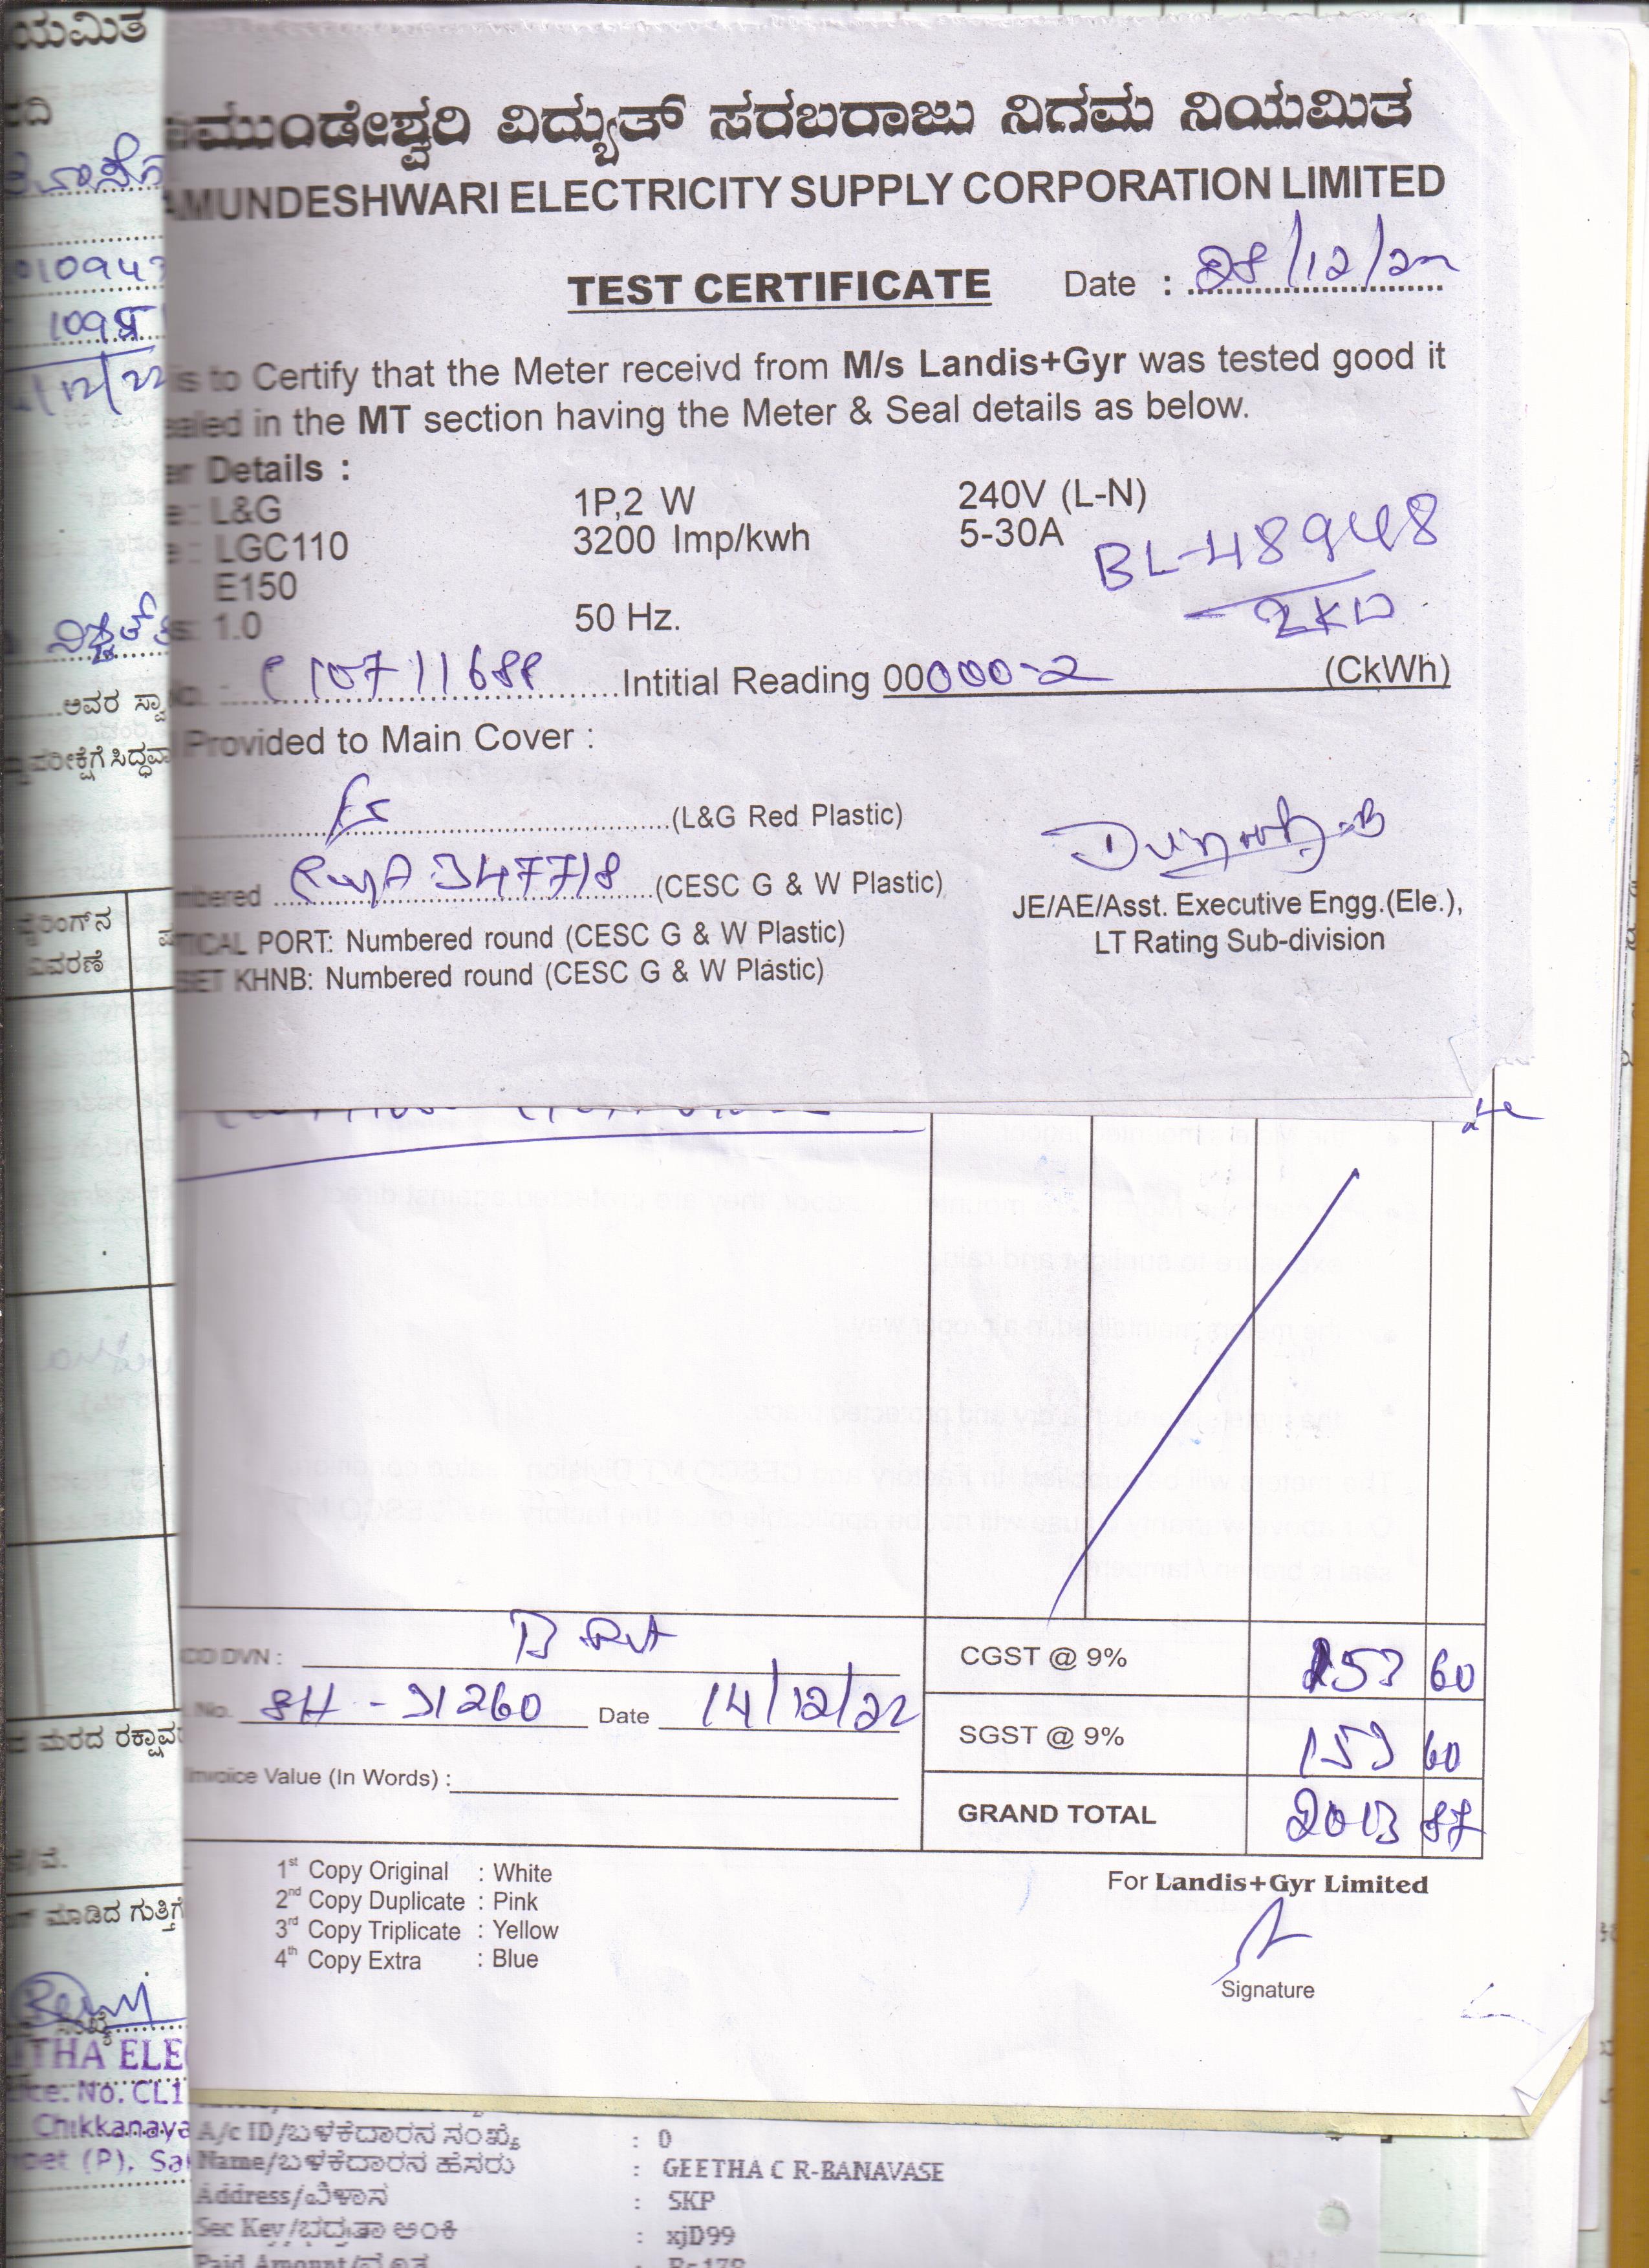 ಯಮಿತ
ಮುಂಡೇಶ್ವರಿ ವಿದ್ಯುತ್ ಸರಬರಾಜು ನಿಗಮ ನಿಯಮಿತ
AMUNDESHWARI ELECTRICITY SUPPLY CORPORATION LIMITED
TEST CERTIFICATE Date : 28/12/22
is to Certify that the Meter receivd from M/s Landis+Gyr was tested good it
ealed in the MT section having the Meter & Seal details as below.
er Details :
e : L&G 1P,2 W 240V (L-N)
e : LGC110 3200 Imp/kwh 5-30A
BL-48948
E150
s: 1.0 50 Hz.
2KW
No. : Intitial Reading 00000-2 (CkWh)
Provided to Main Cover :
(L&G Red Plastic)
mbered (CESC G & W Plastic)
JE/AE/Asst. Executive Engg.(Ele.),
TICAL PORT: Numbered round (CESC G & W Plastic)
LT Rating Sub-division
SET KHNB: Numbered round (CESC G & W Plastic)
CO DVN :
CGST @ 9% 153 60
No. SH - 31260 Date 14/12/22
SGST @ 9% 153 60
Invoice Value (In Words) :
GRAND TOTAL 2013 87
1st Copy Original : White
2nd Copy Duplicate : Pink
3rd Copy Triplicate : Yellow
4th Copy Extra : Blue
For Landis+Gyr Limited
Signature
A/c ID/ಬಳಕೆದಾರನ ಸಂಖ್ಯೆ : 0
Name/ಬಳಕೆದಾರನ ಹೆಸರು : GEETHA C R-BANAVASE
Address/ವಿಳಾಸ : SKP
Sec Key/ಭದ್ರತಾ ಅಂಕಿ : xjD99
Paid Amount/ : Rs 178
010943
1098
/12/22
ಅವರ ಸ್ವಾ
ಪರೀಕ್ಷೆಗೆ ಸಿದ್ಧವಾ
ವೈರಿಂಗ್‌ನ
ವಿವರಣೆ
ಮರದ ರಕ್ಷಾವ
ಮಾಡಿದ ಗುತ್ತಿಗೆ
THA ELE
ce. No. CL1
Chikkanaya
pet (P), Sa